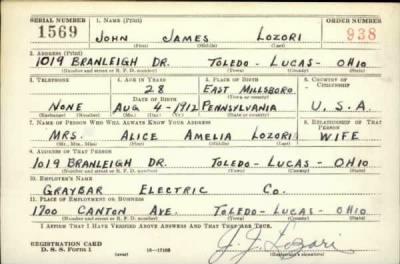 SERIAL NUMBER 1. NAME (Print) ORDER NUMBER
1569 JOHN JAMES LOZORI 938
(First) (Middle) (Last)
2. ADDRESS (Print)
1019 BRANLEIGH DR. TOLEDO - LUCAS - OHIO
(Number and street or R. F. D. number) (Town) (County) (State)
3. TELEPHONE 4. AGE IN YEARS 5. PLACE OF BIRTH 6. COUNTRY OF CITIZENSHIP
28 EAST MILLSBORO
DATE OF BIRTH
NONE AUG 4 - 1912 PENNSYLVANIA U. S. A.
(Exchange) (Number) (Mo.) (Day) (Yr.) (State or country)
7. NAME OF PERSON WHO WILL ALWAYS KNOW YOUR ADDRESS 8. RELATIONSHIP OF THAT PERSON
MRS. ALICE AMELIA LOZORI WIFE
(Mr., Mrs., Miss) (First) (Middle) (Last)
9. ADDRESS OF THAT PERSON
1019 BRANLEIGH DR. TOLEDO - LUCAS - OHIO
(Number and street or R. F. D. number) (Town) (County) (State)
10. EMPLOYER'S NAME
GRAYBAR ELECTRIC CO.
11. PLACE OF EMPLOYMENT OR BUSINESS
1700 CANTON AVE. TOLEDO - LUCAS - OHIO
(Number and street or R. F. D. number) (Town) (County) (State)
I AFFIRM THAT I HAVE VERIFIED ABOVE ANSWERS AND THAT THEY ARE TRUE.
REGISTRATION CARD
D. S. S. Form 1 (over) J. J. Lozori
(Registrant's signature)